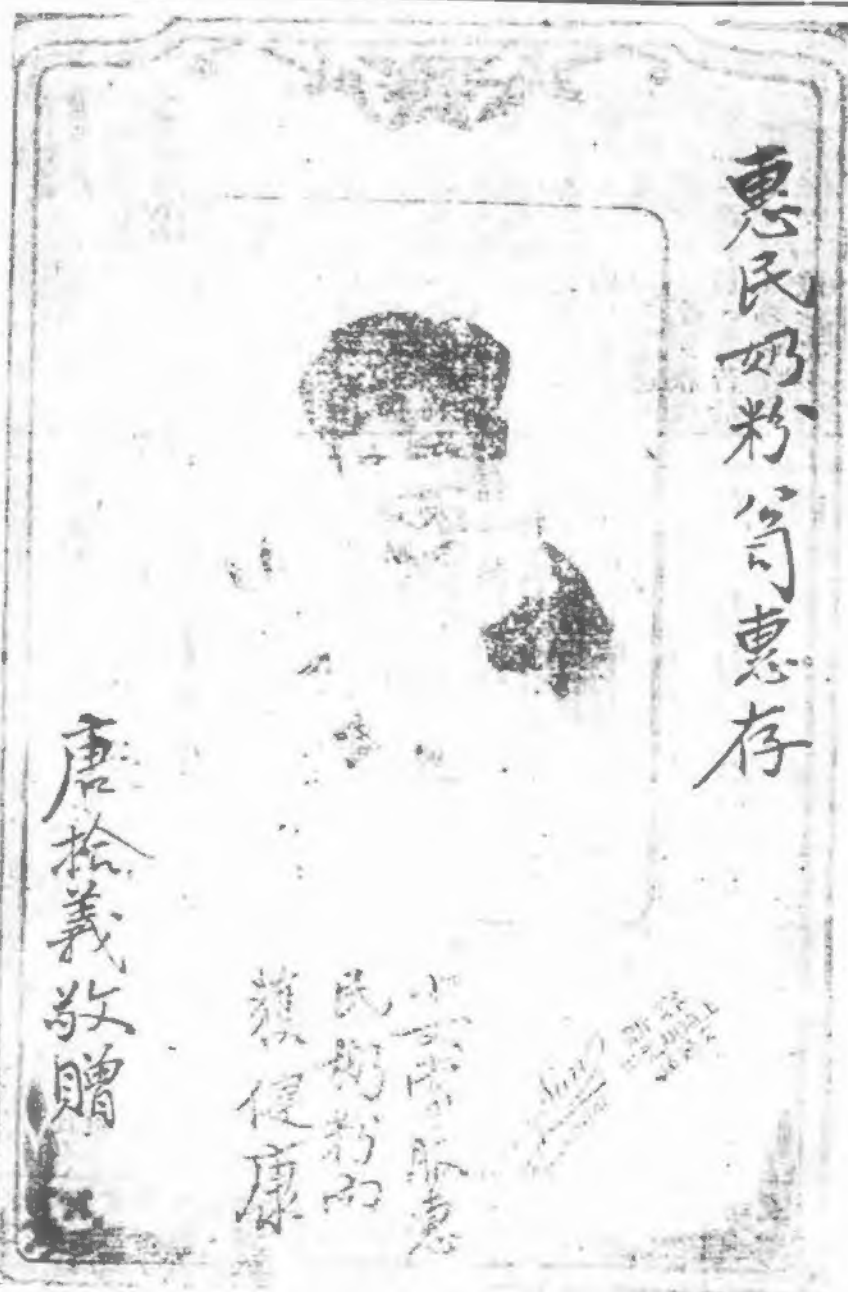 惠民奶粉公司惠存
小雲常服惠
民奶粉而
獲健康
唐拾義敬贈